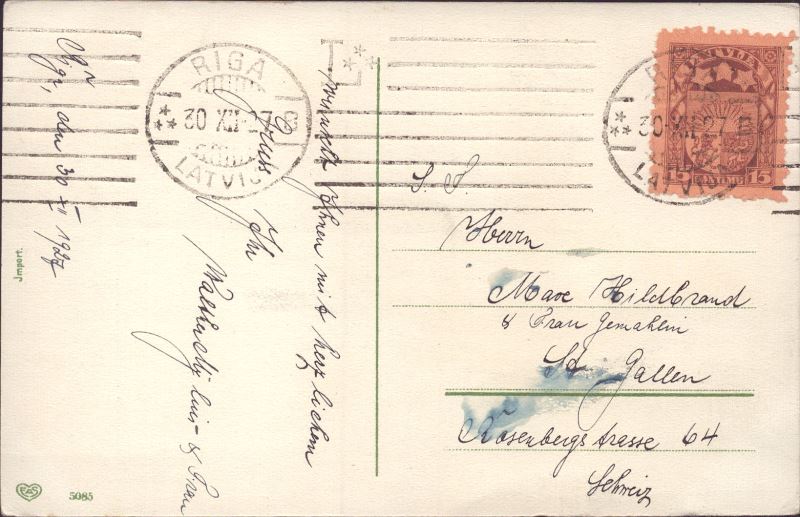 Riga, den 30 XII 1927
wünscht Ihnen mit herzlichem
Gruss
Ihr
& Frau
RIGA
30 XII 27
LATVIJA
LATVIJA
15 15
RIGA
30 XII 27
LATVIJA
S. T.
Herrn
Max Hildbrand
& Frau Gemahlin
St. Gallen
Rosenbergstrasse 64
Schweiz
Import.
EAS
5085